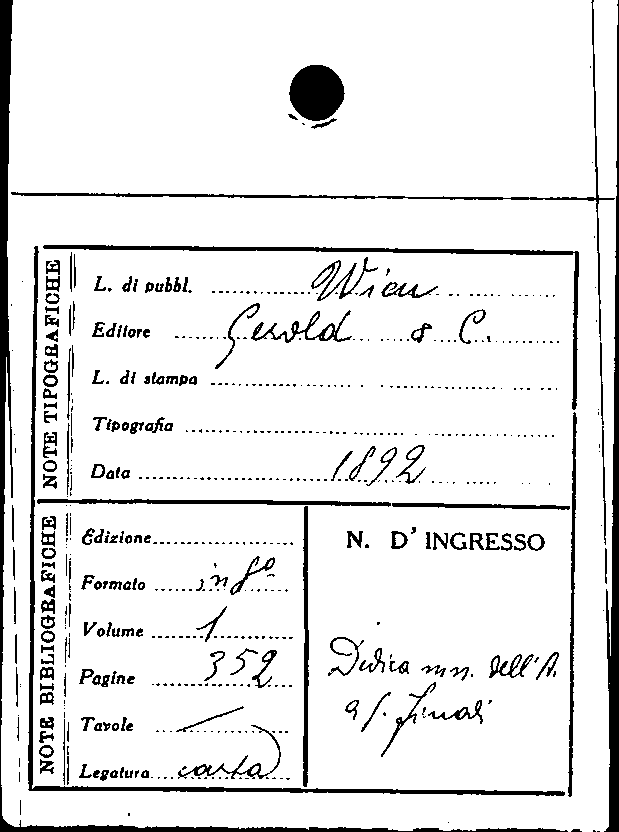 NOTE TIPOGRAFICHE
L. di pubbl. Wien
Editore Gerold & C.
L. di stampa
Tipografia
Data 1892
NOTE BIBLIOGRAFICHE
Edizione
Formato in 8°
Volume 1
Pagine 352
Tavole /
Legatura carta
N. D' INGRESSO
Dedica mn. dell'A.
a